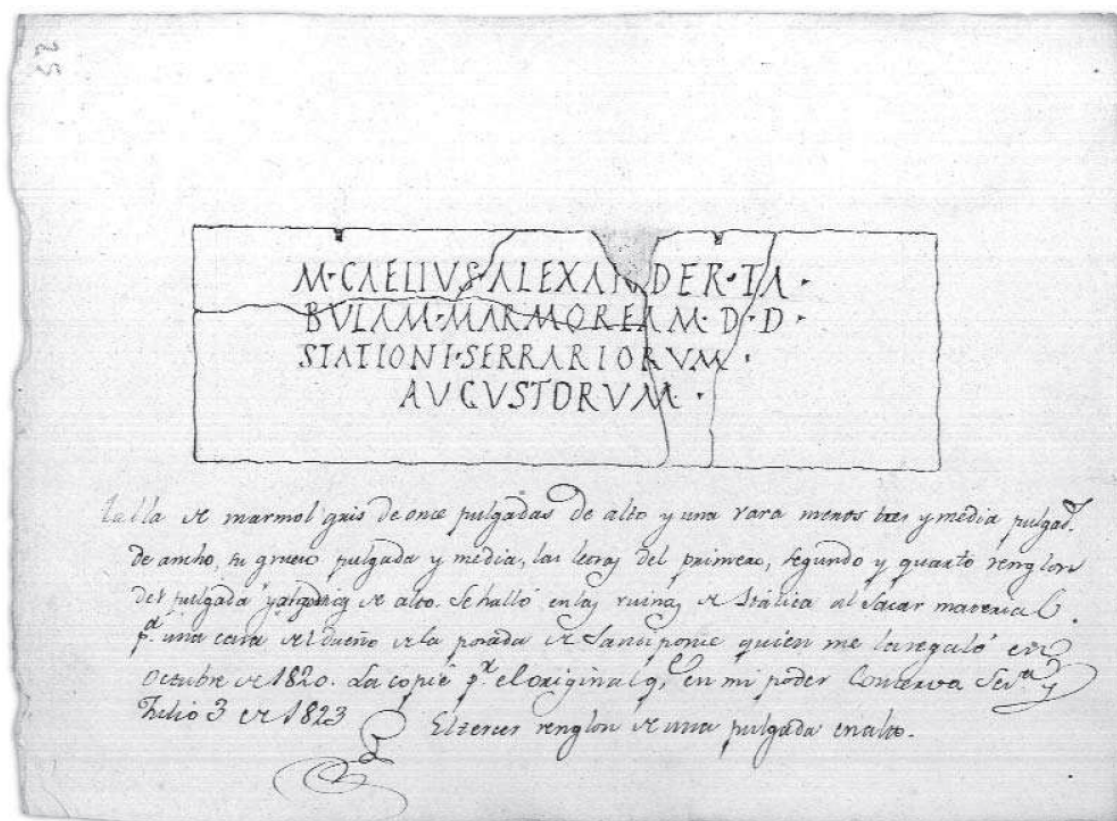 25
M·CAELIVS·ALEXANDER·TA·
BVLAM·MARMOREAM·D·D·
STATIONI·SERRARIORVM·
AVGVSTORVM·
talla de marmol gris de once pulgadas de alto y una vara menos tres y media pulgad.s
de ancho, su grueso pulgada y media, las letras del primero, segundo y quarto renglon
de pulgada de alto. Se halló en las ruinas de Itálica al sacar material
p.a una casa del dueño de la posada de Santiponce quien me la regaló en
Octubre de 1820. La copié p.r el original q.e en mi poder Conserva Sev.a y
Julio 3 de 1823
El tercer renglon de una pulgada en alto.